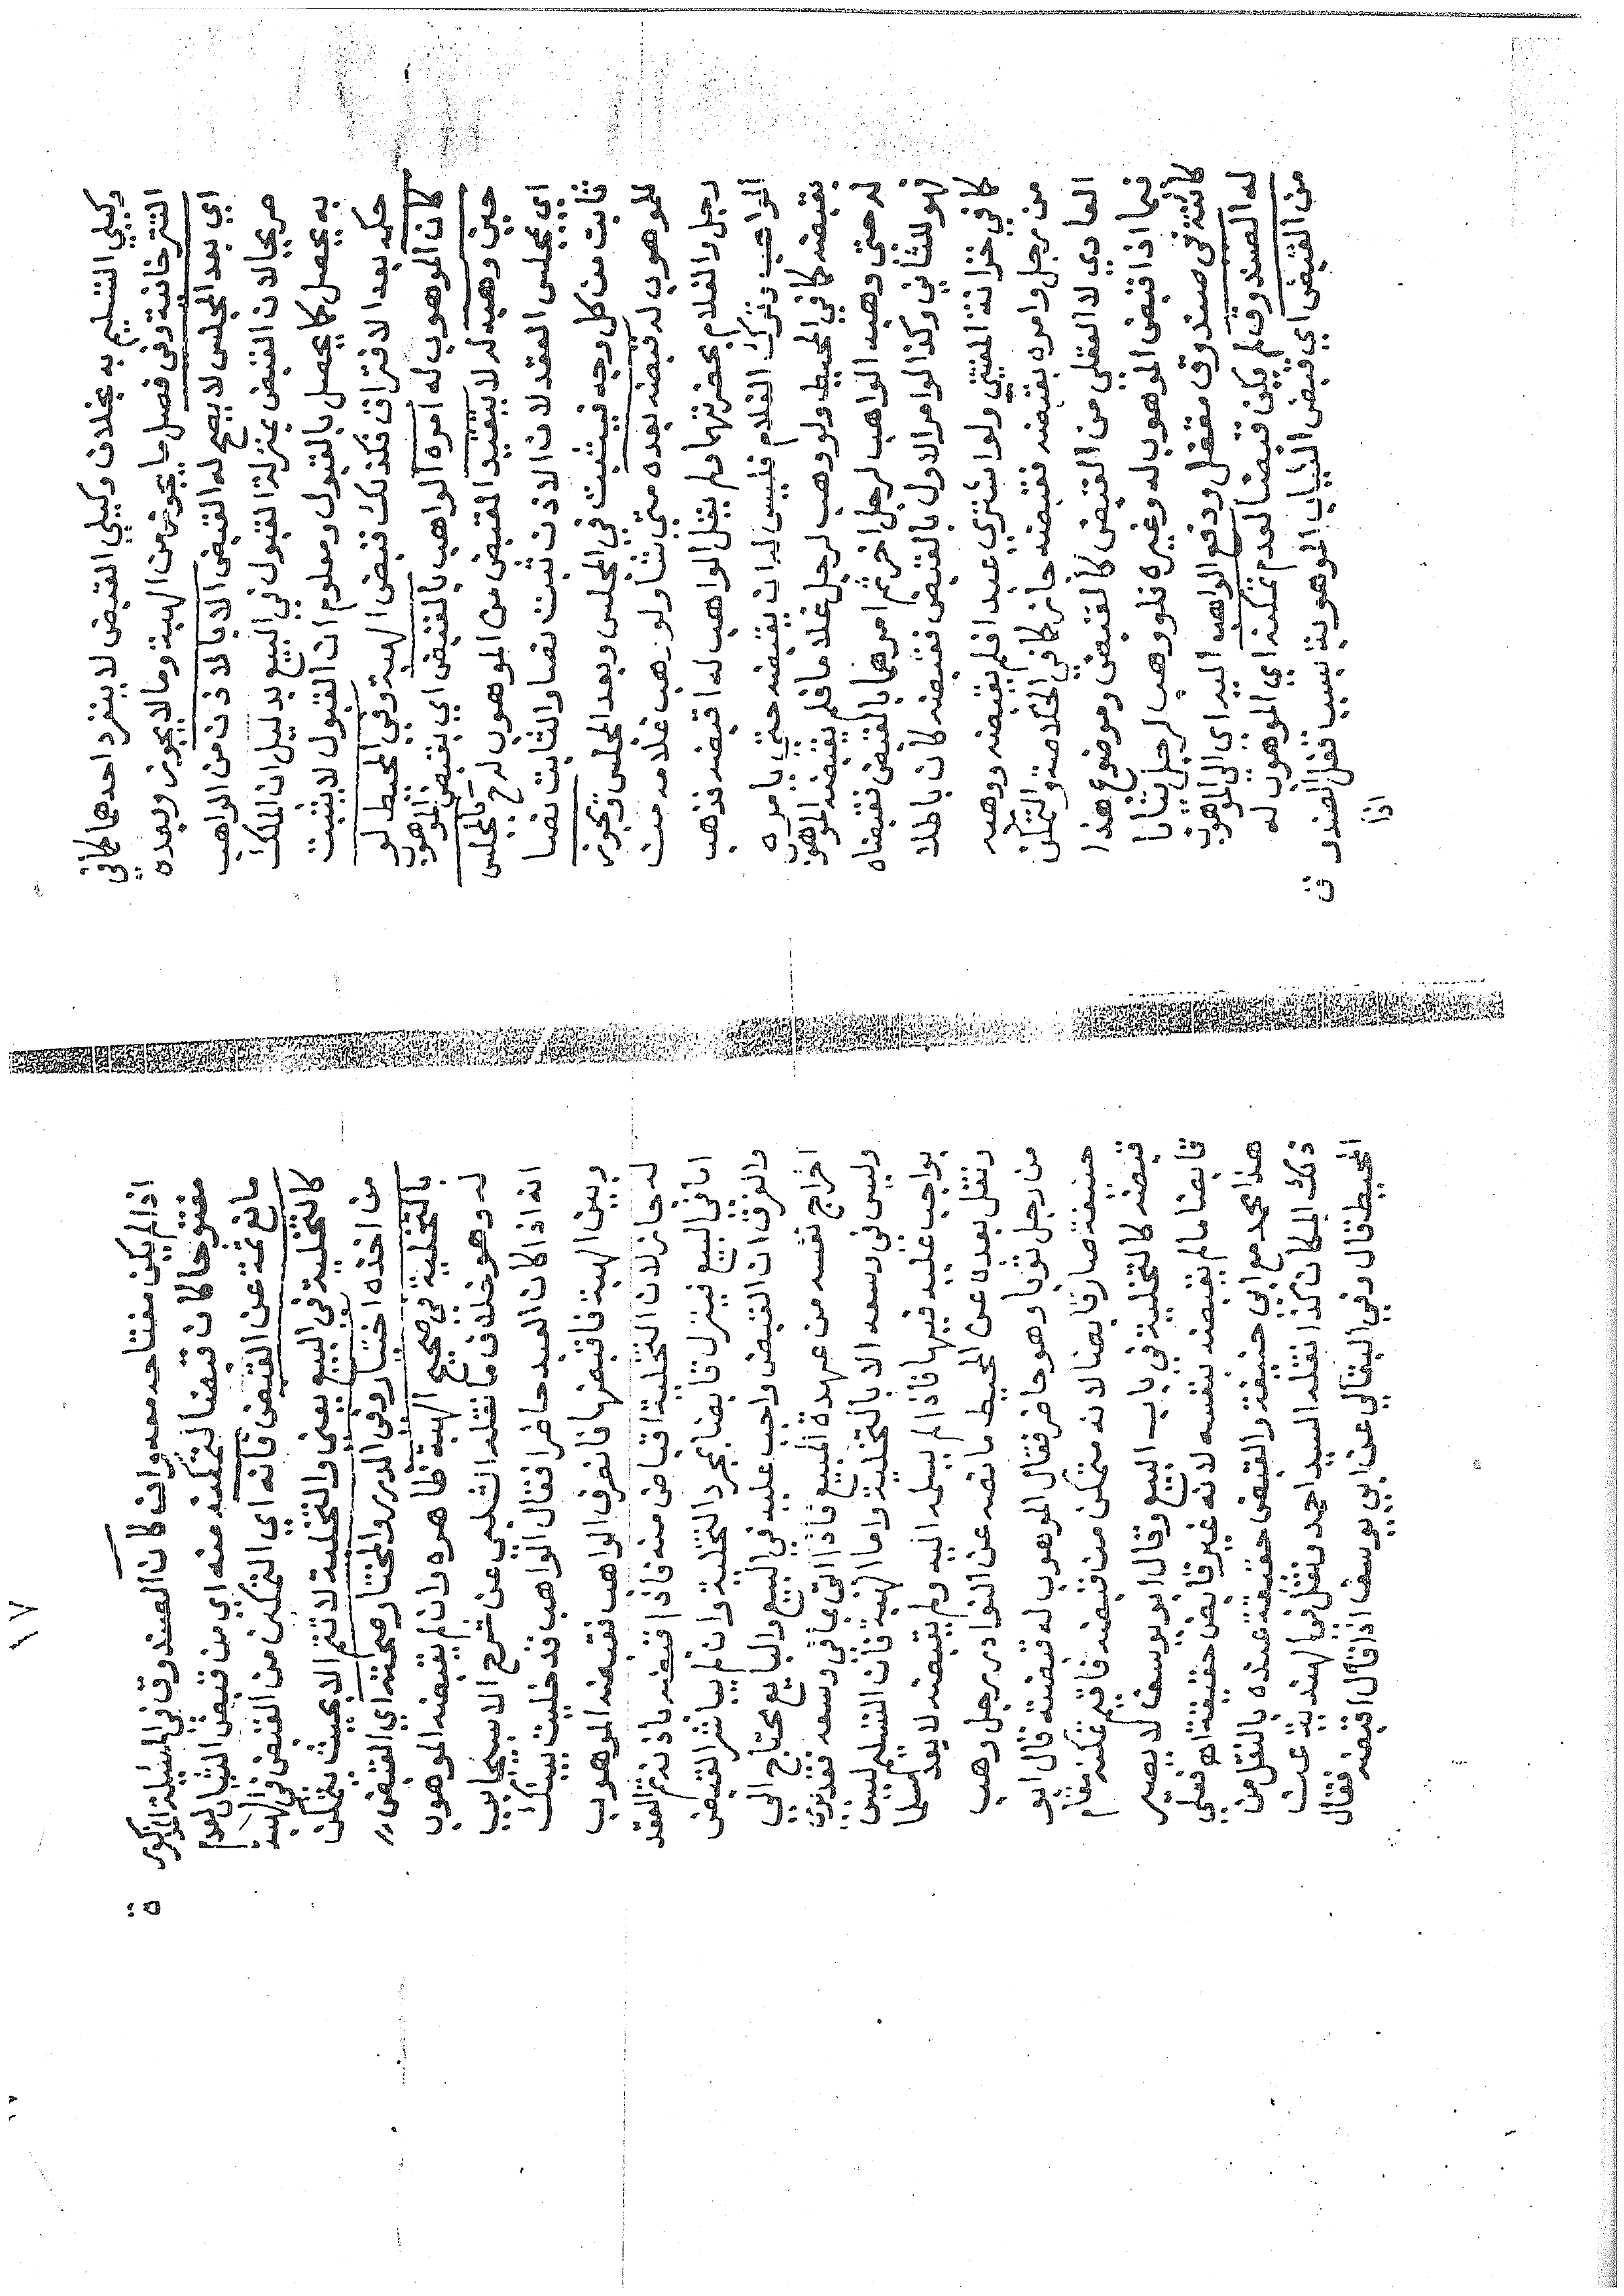 وكيلي التسليم به بخلاف وكيلي القبض لا ينفرد احدهما كما في
التترخانية وفي فصل ما يجوز من الهبة وما لا يجوز وبعده
اي بعد المجلس لا يصح له القبض الا بالاذن من الواهب
صريحا لان القبض بمنزلة القبول في البيع بدليل ان الملك
به يحصل كما يحصل بالقبول ومعلوم ان القبول لا يثبت
حكمه بعد الافتراق فكذلك قبض الهبة وفي المحيط لو
كان الموهوب له امره الواهب بالقبض اي بقبض الموهوب
حين وهبه له لا يتقيد القبض من الموهوب له ح بالمجلس
اي مجلس العقد لان الاذن ثبت نصا والثابت نصا
ثابت من كل وجه فيثبت في المجلس وبعد المجلس ويجوز
للموهوب له قبضه بعده متى شا ولو وهب غلامه من
رجل والغلام بحضرتهما ولم يقل الواهب له اقبضه فذهب
الواهب وترك الغلام فليس له ان يقبضه حتى يامره
بقبضه كما في المحيط ولو وهب لرجل غلاما فلم يقبضه الموهوب
له حتى وهبه الواهب لرجل اخر ثم امرهما بالقبض فقبضاه
فهو للثاني وكذا لو امر الاول بالقبض فقبضه كان باطلا
كما في خزانة المفتي ولو اشترى عبدا فلم يقبضه ووهبه
من رجل وامره بقبضه فقبضه جاز كما في الخلاصة والتمكن
العادي لا العقلي من القبض كالقبض وموضوع هذا
فيما اذا قبض الموهوب له وغيره فلو وهب لرجل ثيابا
كائنة في صندوق مقفل ودفع الواهب اليه اي الى الموهوب
له الصندوق لم يكن قبضا لعدم تمكنه اي الموهوب له
من القبض اي قبض الثياب الموهوبة بسبب قفل الصندوق
اذا
١٧
اذا لم يكن مفتاحه معه وان كان الصندوق في المسئلة المذكورة
مفتوحا كان قبضا لتمكنه منه اي من قبض الثياب لعدم
مانع ثمة عن القبض فانه اي التمكن من القبض في الهبة
كالتخلية في البيع يعني والتخلية لا تتم الا بحيث يتمكن
من اخذه اختيار وفي الدرر والمختار صحته اي القبض
بالتخلية في صحيح الهبة ظاهره وان لم يقبضه الموهوب
له وهو خلاف ما نقله الشلبي عن شرح الاسبيجابي
انه اذا كان العبد حاضرا فقال الواهب قد خليت بينك
وبين الهبة فاقبضها فانصرف الواهب فقبضه الموهوب
له جاز لان التخلية اقباض منه فاذا قبضه باذنه تم العقد
اما في البيع فينزل قابضا بمجرد التخلية وان لم يباشر القبض
والفرق ان القبض واجب عليه في البيع والبايع يحتاج الى
اخراج نفسه من عهدة المبيع فاذا اتى بما في وسعه
وليس في وسعه الا بالتخلية واما الهبة فان التسليم ليس
بواجب عليه فيها فاذا لم يسلمه اليه ولم يقبضه لا يعد مسلما
ونقل بعده عن المحيط ما نصه عن النوادر رجل وهب
من رجل ثوبا وهو حاضر فقال الموهوب له قبضته قال ابو
حنيفة صار قابضا لانه متمكن من قبضه فاقيم تمكنه مقام
قبضه كالتخلية في باب البيع وقال ابو يوسف لا يصير
قابضا ما لم يقبضه بنفسه لانه غير قابض حقيقة اه فعلى
هذا محمد مع ابي حنيفة والقبض حقيقة عنده بالنقل من
ذلك المكان كذا نقله السيد احمد ونقل في الهندية عن
المحيط قال وفي البقالي عن ابي يوسف اذا قال اقبضه فقال